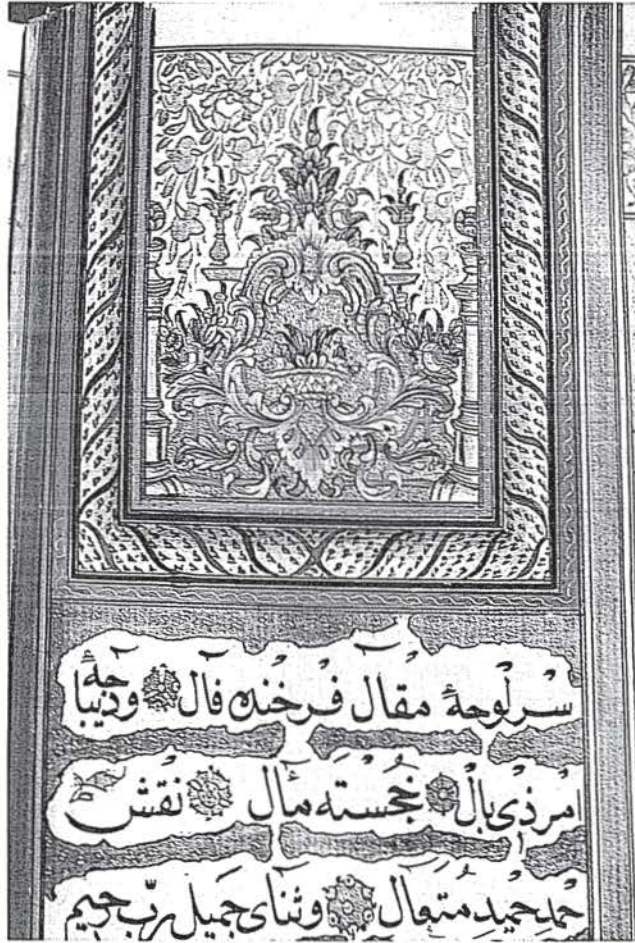 سرلوحهٔ مقال فرخنده فال ودیباجهٔ
امر ذی بال خجسته مآل نقش
حمد حمید متعال وثنای جمیل رب رحیم